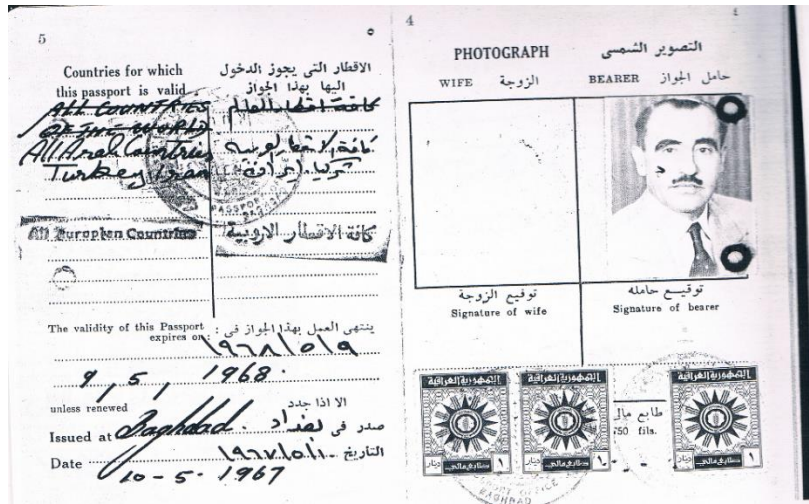 5
٥
Countries for which
this passport is valid
الاقطار التى يجوز الدخول
اليها بهذا الجواز
ALL COUNTRIES
OF THE WORLD
كافة اقطار العالم
All Arab Countries
كافة الاقطار العربية
Turkey Iran
All European Countries
كافة الاقطار الاروبية
The validity of this Passport
expires on:
ينتهى العمل بهذا الجواز فى :
١٩٦٨/٥/٩
9, 5, 1968.
unless renewed
الا اذا جدد
Issued at Baghdad.
صدر فى بغداد
Date 10-5-1967
التأريخ
4
٤
PHOTOGRAPH
التصوير الشمسى
WIFE
الزوجة
BEARER
حامل الجواز
توقيع الزوجة
Signature of wife
توقيع حامله
Signature of bearer
الجمهورية العراقية
الجمهورية العراقية
الجمهورية العراقية
طابع مالي
750 fils.
١
طابع مالي
دينار
١
طابع مالي
دينار
١
طابع مالي
دينار
BAGHDAD